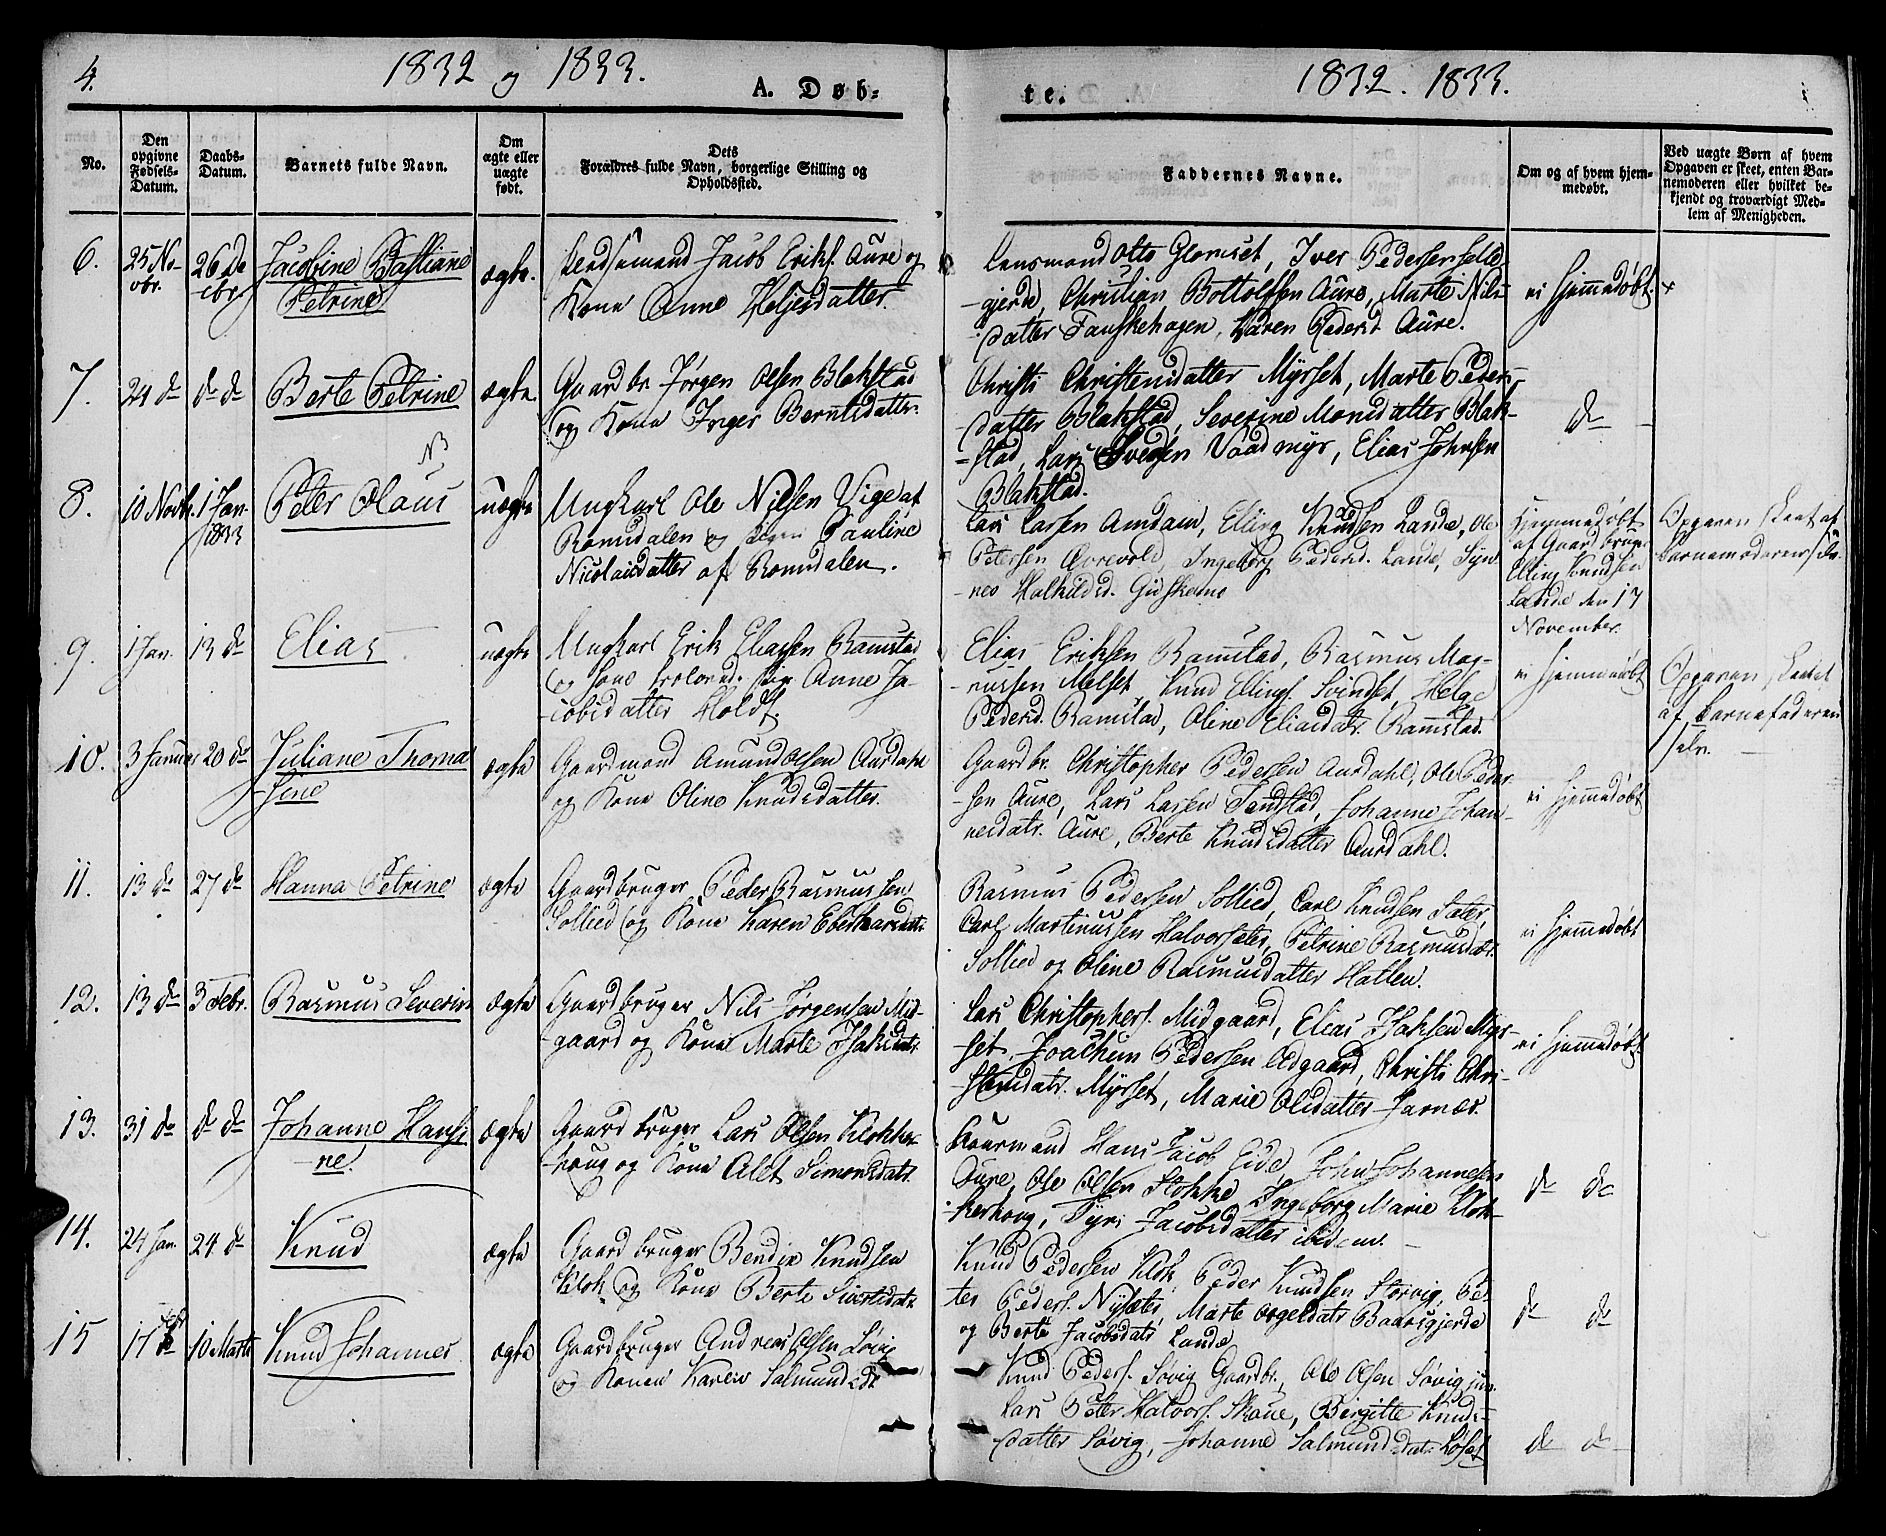 4.
1832 og 1833.
A. Døb-
te.
1832. 1833.
No.
Den opgivne Fødsels-Datum.
Daabs-Datum.
Barnets fulde Navn.
Om ægte eller uægte født.
Dets
Forældres fulde Navn, borgerlige Stilling og
Opholdsted.
Faddernes Navne.
Om og af hvem hjem-
medøbt.
Ved uægte Børn af hvem
Opgaven er skeet, enten Bar-
nemoderen eller hvilket be-
kjendt og troværdigt Med-
lem af Menigheden.
6. 25 No- 26 De Jacobine Bastiane ægte.
vbr. cbr Petrine
Lendsmand Jacob Eriks. Aure og
Kone Anne Helgesdatter.
Lensmand Otto Glomset, Iver Pedersen Selle-
-gjerde, Christian Bottolfsen Aure, Marte Nils-
datter Fauskehagen, Karen Pedersd. Aure.
ei hjemmedøbt.
7. 24 do do do Berte Petrine ægte.
Gaardbr. Jørgen Olsen Blakstad
og Kone Inger Berntsdatter.
Christi Christensdatter Myrset, Marte Peders-
datter Blakstad, Severine Monsdatter Blak-
-stad, Lars Svensen Vaadmyr, Elias Johnsen
Blakstad.
do
NB
8. 10 Novbr. 1 Jan. Peter Olaus uægte
1833
Ungkarl Ole Nielsen Vige af
Romsdalen og pigen Pauline
Nicolaisdatter af Romsdalen.
Lars Larsen Amdam, Elling Knudsen Lande, Ole
Petersen Aurevold, Ingeborg Pedersd. Lande, Syn-
-nes Halkildsd. Giskemo
hjemmedøbt
af Gaardbruger
Elling Knudsen
Lande den 17
November.
Opgaven skeet af
barnemoderen selv.
9. 1 Jan. 13 do Elias uægte
Ungkarl Erik Eliassen Ramstad
og hans trolovede pige Anne Ja-
-cobsdatter Holdt.
Elias Eriksen Ramstad, Rasmus Mag-
-nussen Melset, Knud Ellings. Svindset, Helge
Pedersd. Ramstad, Oline Eliasdatr. Ramstad.
ei hjemmedøbt
Opgaven skeet
af barnefaderen
selv.
10. 3 Januar 20 do Juliane Thoma- ægte
-sine
Gaardmand Amund Olsen Aurdahl
og Kone Oline Knudsdatter.
Gaardbr. Christopher Pedersen Aurdahl, Ole Peder-
-sen Aure, Lars Lassen Tandstad, Johanne Johan-
nesdatr. Aure, Berte Knudsdatter Aurdahl.
ei hjemmedøbt
11. 13 do 27 do Hanna Petrine ægte
Gaardbruger Peder Rasmussen
Sollied og Kone Karen Eberhardsdatr.
Rasmus Pedersen Sollied, Carl Knudsen Sæter,
Carl Martinussen Halvorsæter, Petrine Rasmusdatr.
Sollied og Oline Rasmusdatter Hatlen.
ei hjemmedøbt
12. 13 do 3 Febr. Rasmus Severin ægte
Gaardbruger Nils Jørgensen Mid-
-gaard og Kone Marte Isaksdatr.
Lars Christophers. Midgaard, Elias Isaksen Myr-
-set, Joachum Pedersen Ødgaard, Christi Chri-
-stensdatr. Myrset, Marie Olsdatter Jarnæs.
ei hjemmedøbt
13. 31 do do do Johanne Hansi- ægte
-ne.
Gaardbruger Lars Olsen Klokker-
-houg og Kone Alet Simonsdatr.
Kaarmand Hans Jacob Eide, John Johannesen
Aure, Ole Olsen Stokke, Ingeborg Marie Klok-
-kerhoug, Syri Jacobsdatter ibidem.
do do
14. 24 Jan. 24 do Knud ægte
Gaardbruger Bendix Knudsen
Klok og Kone Berte Sivertsdatr.
Knud Pedersen Klok, Peder Knudsen Storvig, Pe-
ter Peders. Nysæter, Marte Aageldatr. Baarsgjerde
og Berte Jacobsdatr Lande
do do
15 17 Febr 10 Marts Knud Johannes ægte
Gaardbruger Andreas Olsen Søvig
og Konen Karen Salmundsdr
Knud Peders. Søvig Gaardbr., Ole Olsen Søvig jun.
Lars Peter Halvors. Skaue, Birgitte Knuds-
datter Søvig, Johanne Salmundsdatr. Løset
do do